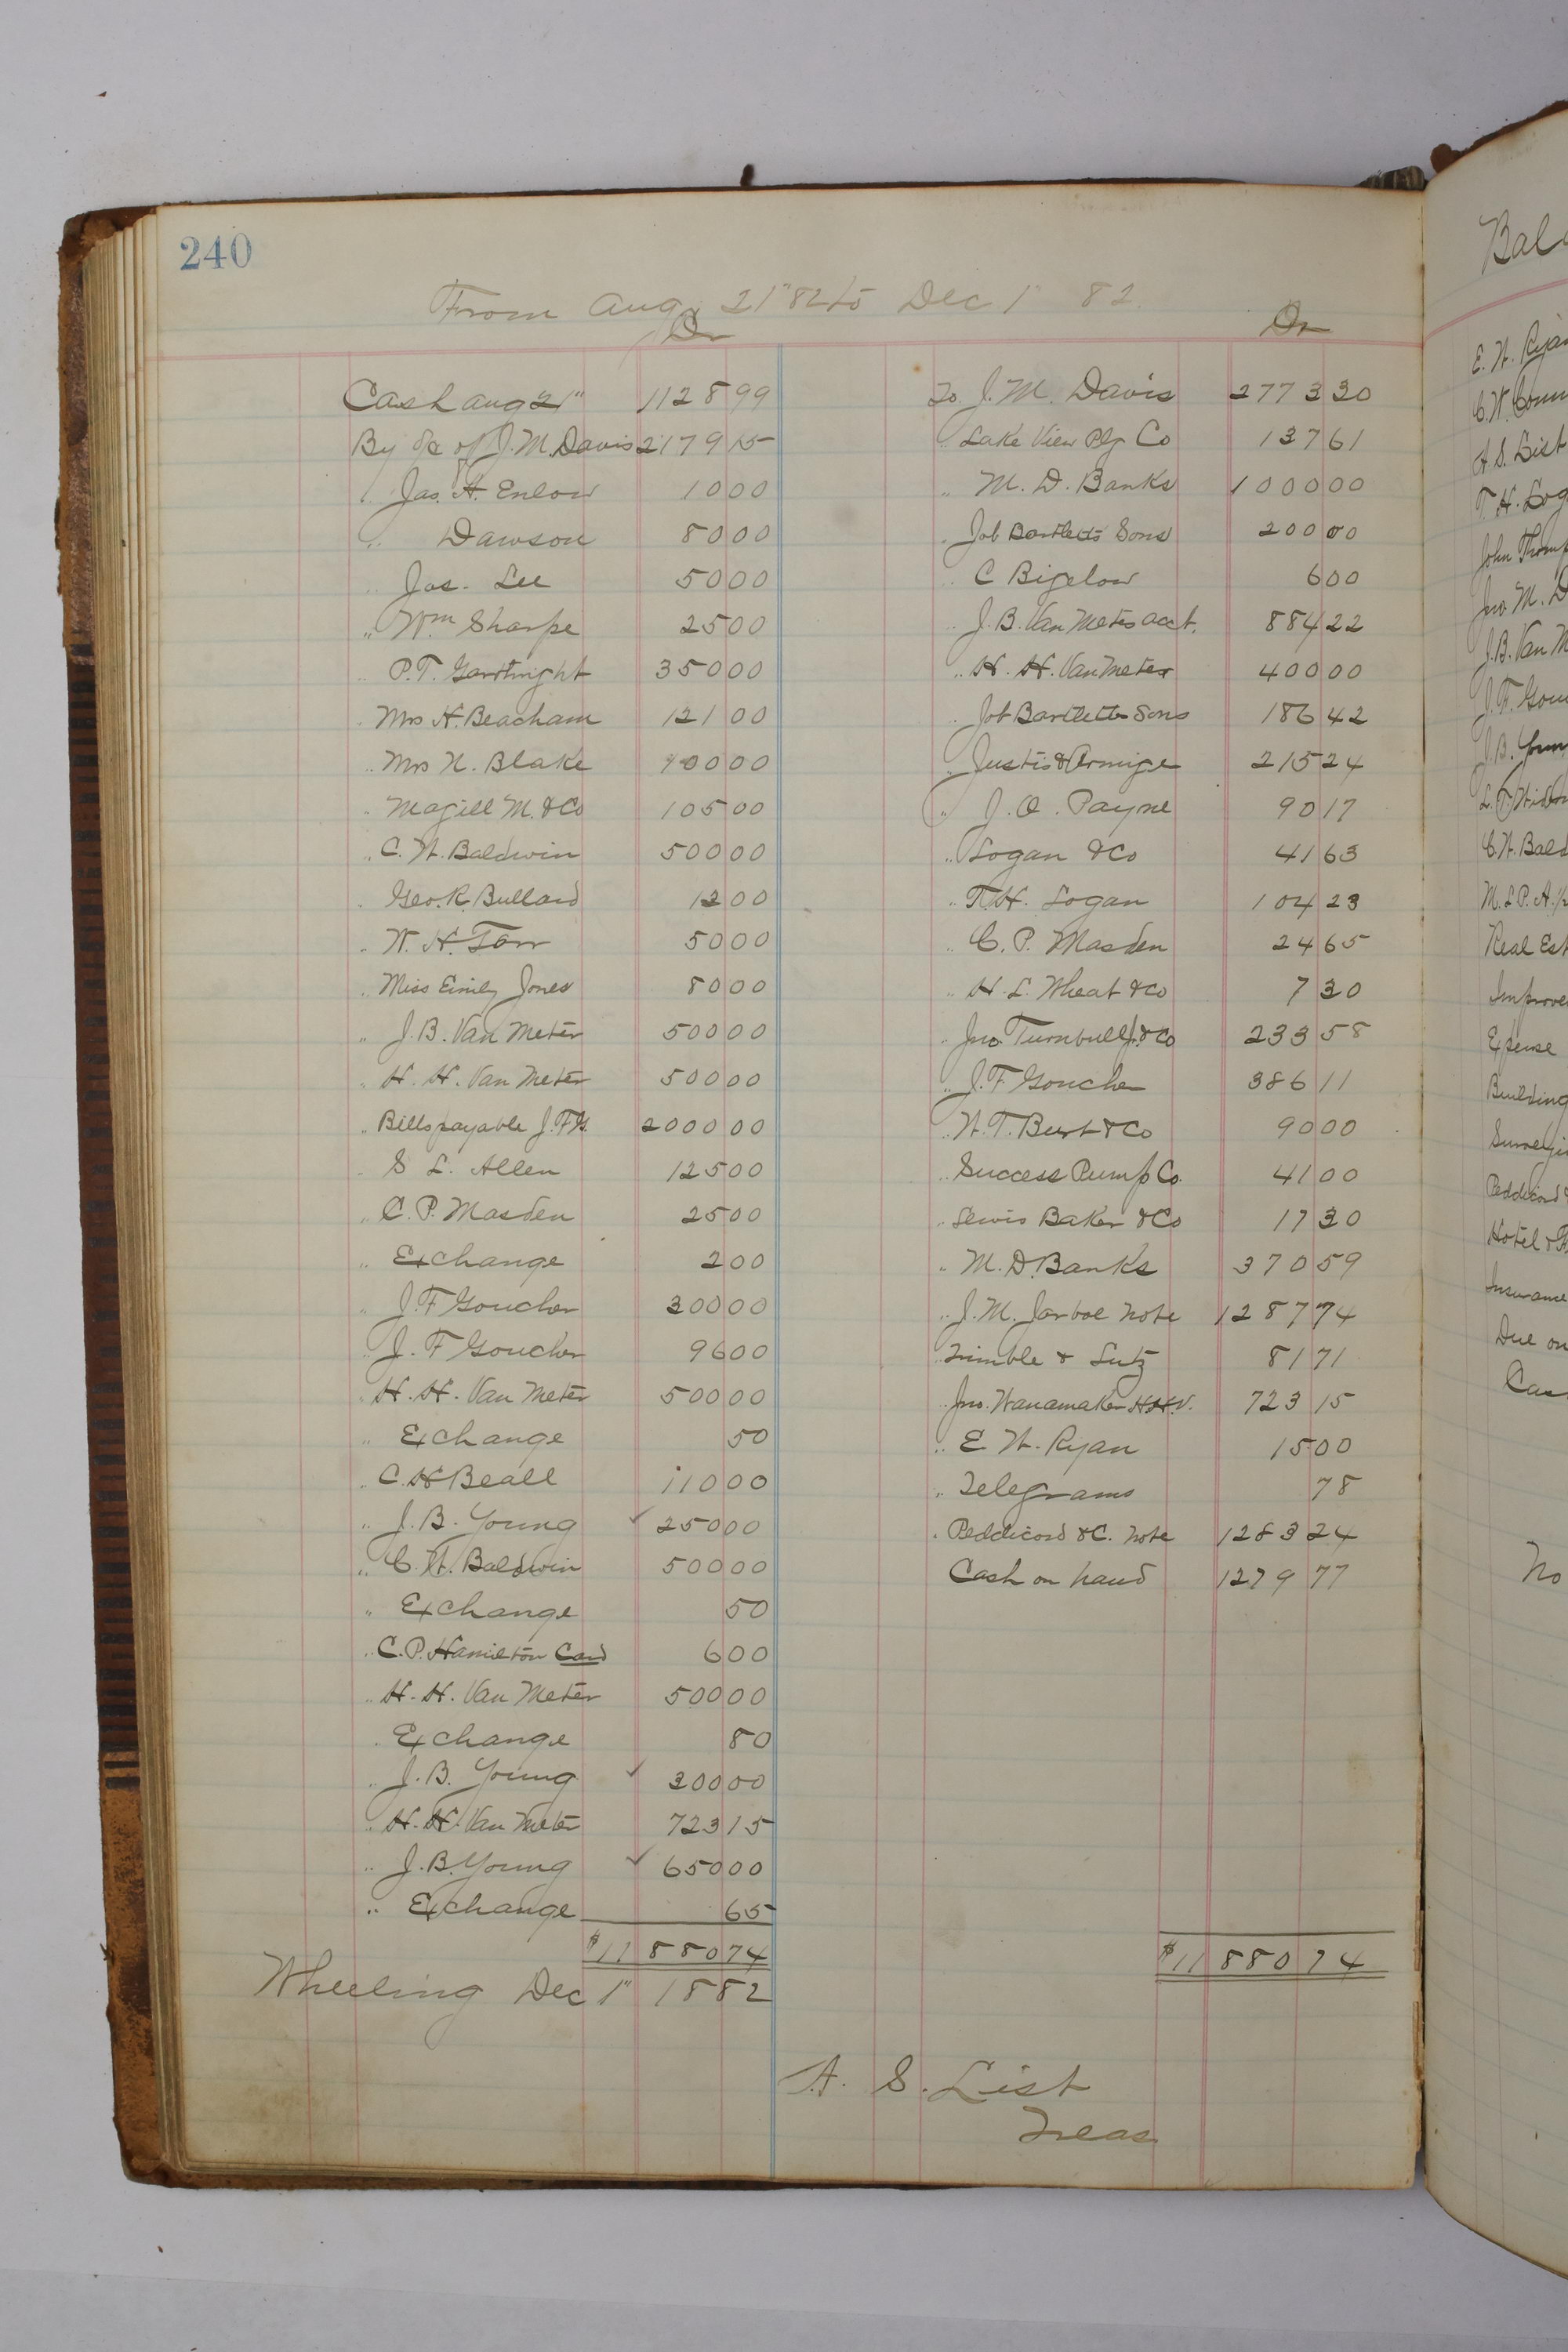 240
From Aug 21" 82 to Dec 1" 82.
Dr
Cash Aug 21" 1128 99
By of J. M. Davis 2179 15
" Jas. A. Enlow 10 00
" Dawson 80 00
" Jas. Lee 50 00
" Wm Sharpe 25 00
" P. T. Gartright 350 00
" Mrs H. Beacham 121 00
" Mrs N. Blake 00 00
" Magill M. & Co 105 00
" C. W. Baldwin 500 00
" Geo. R. Bullard 12 00
" W. H. Tarr 50 00
" Miss Emily Jones 80 00
" J. B. Van Meter 500 00
" H. H. Van Meter 500 00
" Bills payable J. F. G. 2000 00
" S L. Allen 125 00
" C. P. Masden 25 00
" Exchange 2 00
" J. F Goucher 300 00
" J. F Goucher 96 00
" H. H. Van Meter 500 00
" Exchange 50
" C. H Beall 110 00
" J. B. Young ✓ 250 00
" C. W. Baldwin 500 00
" Exchange 50
" C. P. Hamilton Card 6 00
" H. H. Van Meter 500 00
" Exchange 80
" J. B. Young ✓ 300 00
" H. H. Van Meter 723 15
" J. B. Young ✓ 650 00
" Exchange 65
$11 880 74
Wheeling Dec 1" 1882
Dr
To J. M. Davis 2773 30
" Lake View Plg Co 137 61
" M. D. Banks 1000 00
" Job Bartletts Sons 200 00
" C Bigelow 6 00
" J. B. Van Meters acct. 884 22
" H. H. Van Meter 400 00
" Job Bartletts Sons 186 42
" Justis & Armiger 215 24
" J. O. Payne 90 17
" Logan & Co 41 63
" T. H. Logan 104 23
" C. P. Masden 24 65
" H. L. Wheat & Co 7 30
" Jno. Turnbull Jr. & Co 233 58
" J. F Goucher 386 11
" W. T. Burt & Co 90 00
" Success Pump Co. 41 00
" Lewis Baker & Co 17 30
" M. D. Banks 370 59
" J. M. Jarboe Note 1287 74
" Trimble & Lutz 81 71
" Jno. Wanamaker H. H. V. 723 15
" E. W. Ryan 15 00
" Telegrams 78
" Peddicord & C. Note 1283 24
Cash on hand 1279 77
$11 880 74
A. S. List
Treas
E. W. Ryan
A. S. List
T. H. Log
John Thomp
Jno. M. D
J. B. Van M
J. F. Gou
J. B. Youn
C. W. Bald
M. L P. A.
Real Est
Improve
Expense
Building
Surveyi
Peddicord &
Hotel &
Insurance
Due on
Cas
No